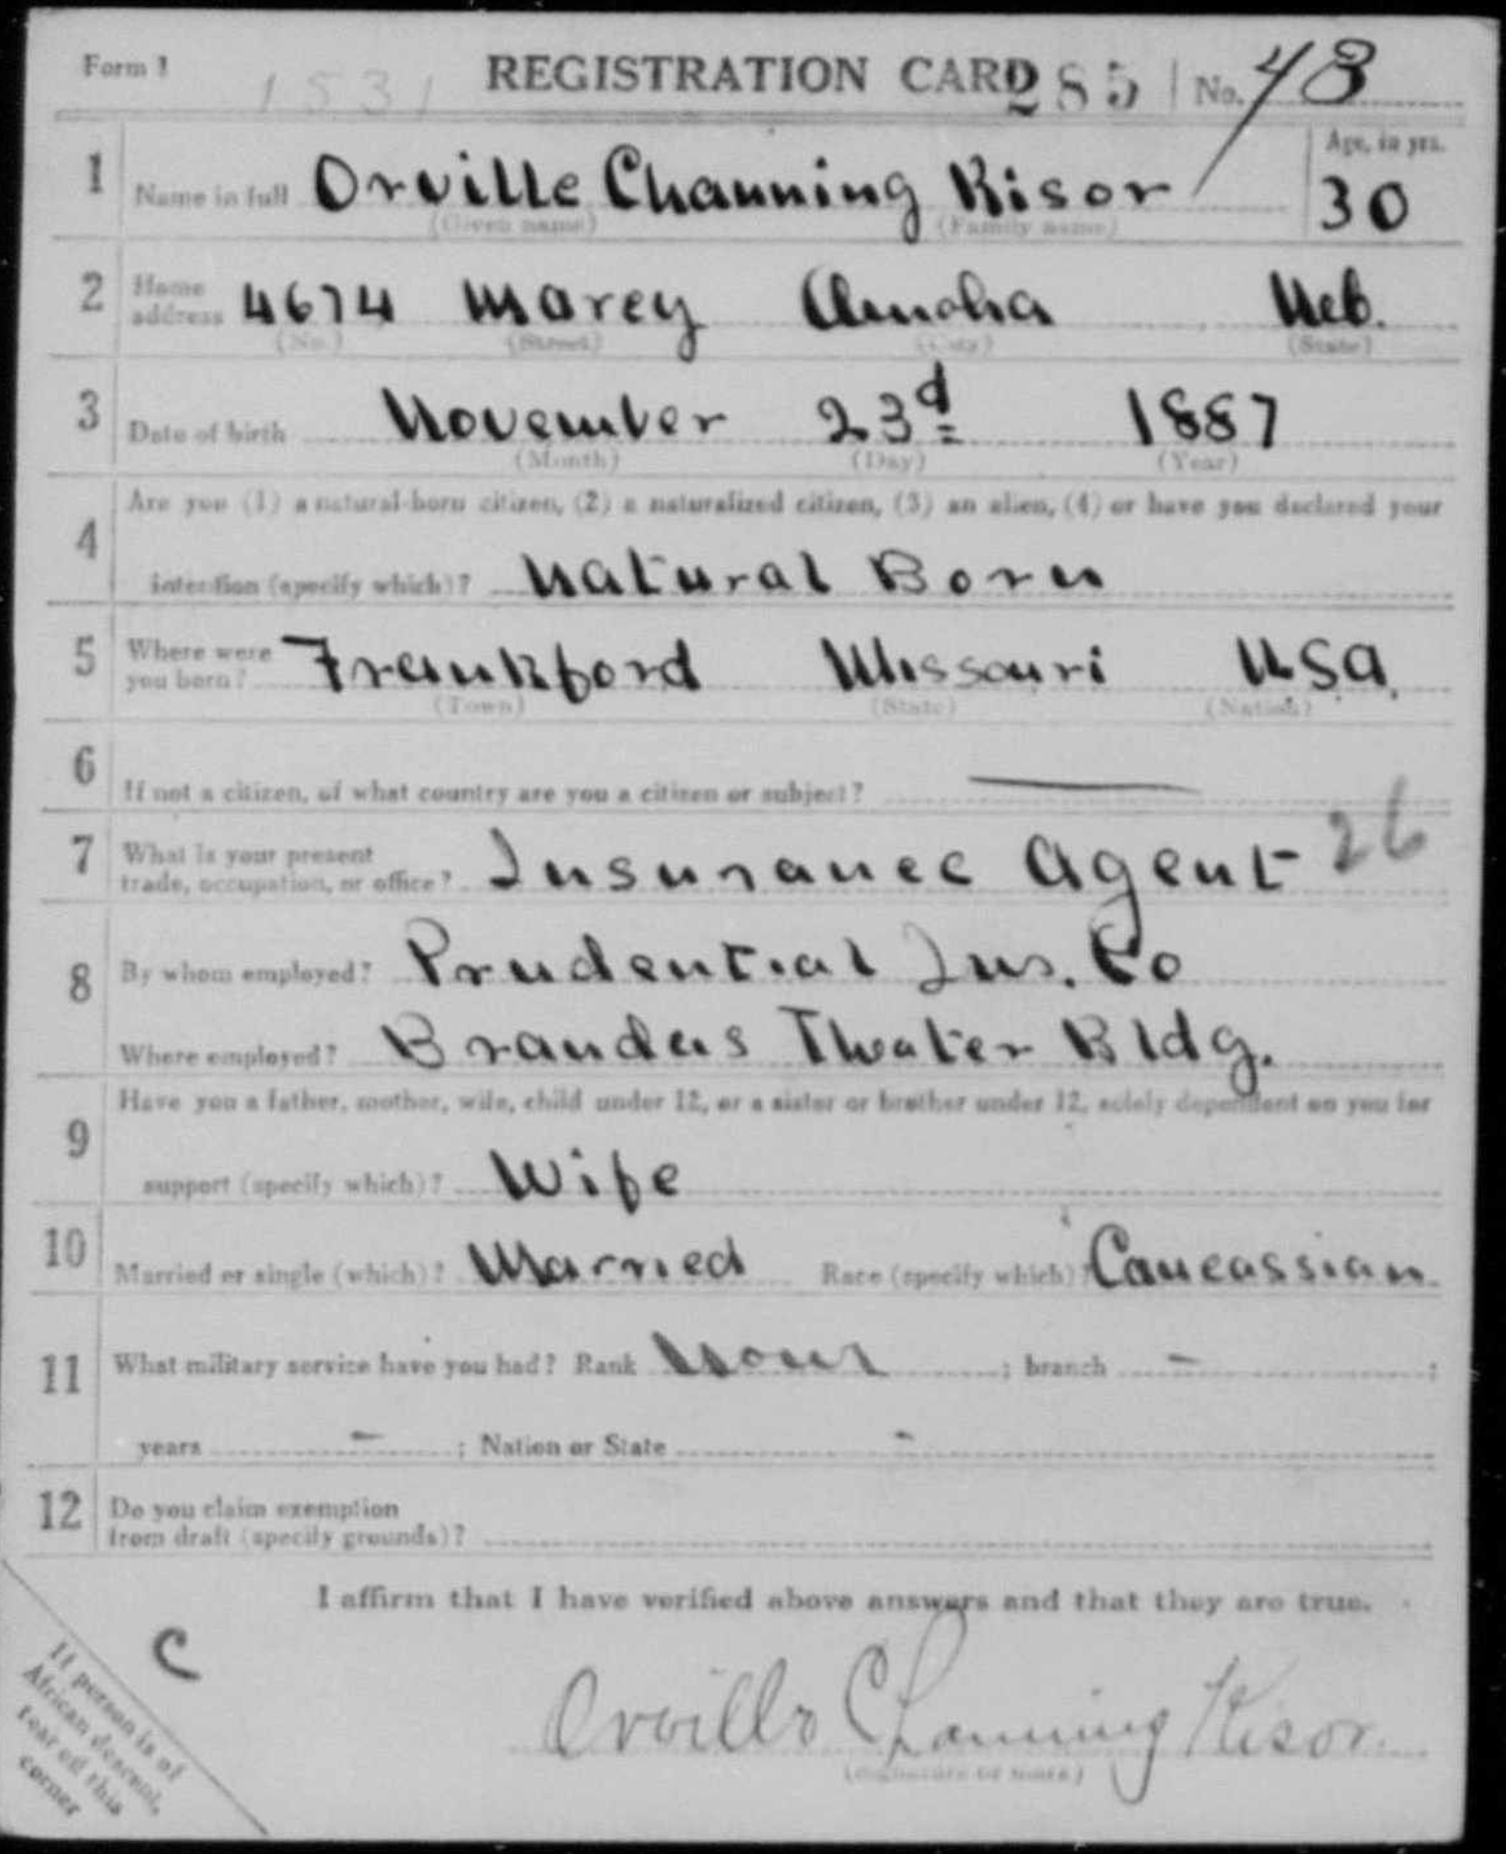 Form 1 1531 REGISTRATION CARD 285 No. 43
1 Name in full Orville Channing Kisor Age, in yrs. 30
(Given name) (Family name)
2 Home address 4674 Marcy Omaha Neb.
(No.) (Street) (City) (State)
3 Date of birth November 23d 1887
(Month) (Day) (Year)
4 Are you (1) a natural-born citizen, (2) a naturalized citizen, (3) an alien, (4) or have you declared your
intention (specify which)? Natural Born
5 Where were you born? Frankford Missouri USA.
(Town) (State) (Nation)
6 If not a citizen, of what country are you a citizen or subject? —
7 What is your present trade, occupation, or office? Insurance Agent 26
8 By whom employed? Prudential Ins. Co
Where employed? Brandeis Theater Bldg.
9 Have you a father, mother, wife, child under 12, or a sister or brother under 12, solely dependent on you for
support (specify which)? Wife
10 Married or single (which)? Married Race (specify which)? Caucassian
11 What military service have you had? Rank None ; branch - ;
years - ; Nation or State -
12 Do you claim exemption
from draft (specify grounds)?
I affirm that I have verified above answers and that they are true.
C
Orville Channing Kisor
(Signature or mark)
If person is of
African descent,
tear off this
corner